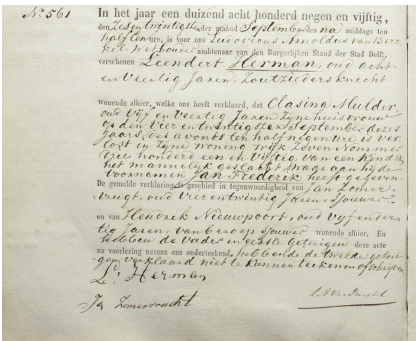 No 561
In het jaar een duizend acht honderd negen en vijftig,
den Zesentwintigsten der maand September des na middags ten
half tien ure, is voor ons Ludovicus Arnoldus van
Wethouder ambtenaar van den Burgerlijken Stand der Stad Delft,
verschenen Leendert Herman, oud acht
en Veertig Jaren, Zoutziedersknecht
wonende alhier, welke ons heeft verklaard, dat Clasina Mulder,
oud Vijf en Veertig Jaren Zijne huisvrouw
op den Vier en twintigsten September dezes
jaars, des avonds ten half negen ure is ver-
lost in Zijne woning Wijk Zeven Nommer
Drie honderd een en Vijftig, van een Kind van
het mannelijk geslacht, dragende aan hij de
voornamen Jan Frederik heeft gegeven
De gemelde verklaring is geschied in tegenwoordigheid van Jan Zomer-
vrugt, oud Vier en twintig Jaren, Sjouwer
en van Hendrik Nieuwpoort, oud Vijf en der-
tig Jaren, van beroep Sjouwer wonende alhier. En
hebben de Vader en eerste getuigen deze acte
na voorlezing nevens ons onderteekend, hebbende de tweede getui-
gen verklaard niet te kunnen teekenen of schrijven
Ld Herman
Jn Zomervrucht